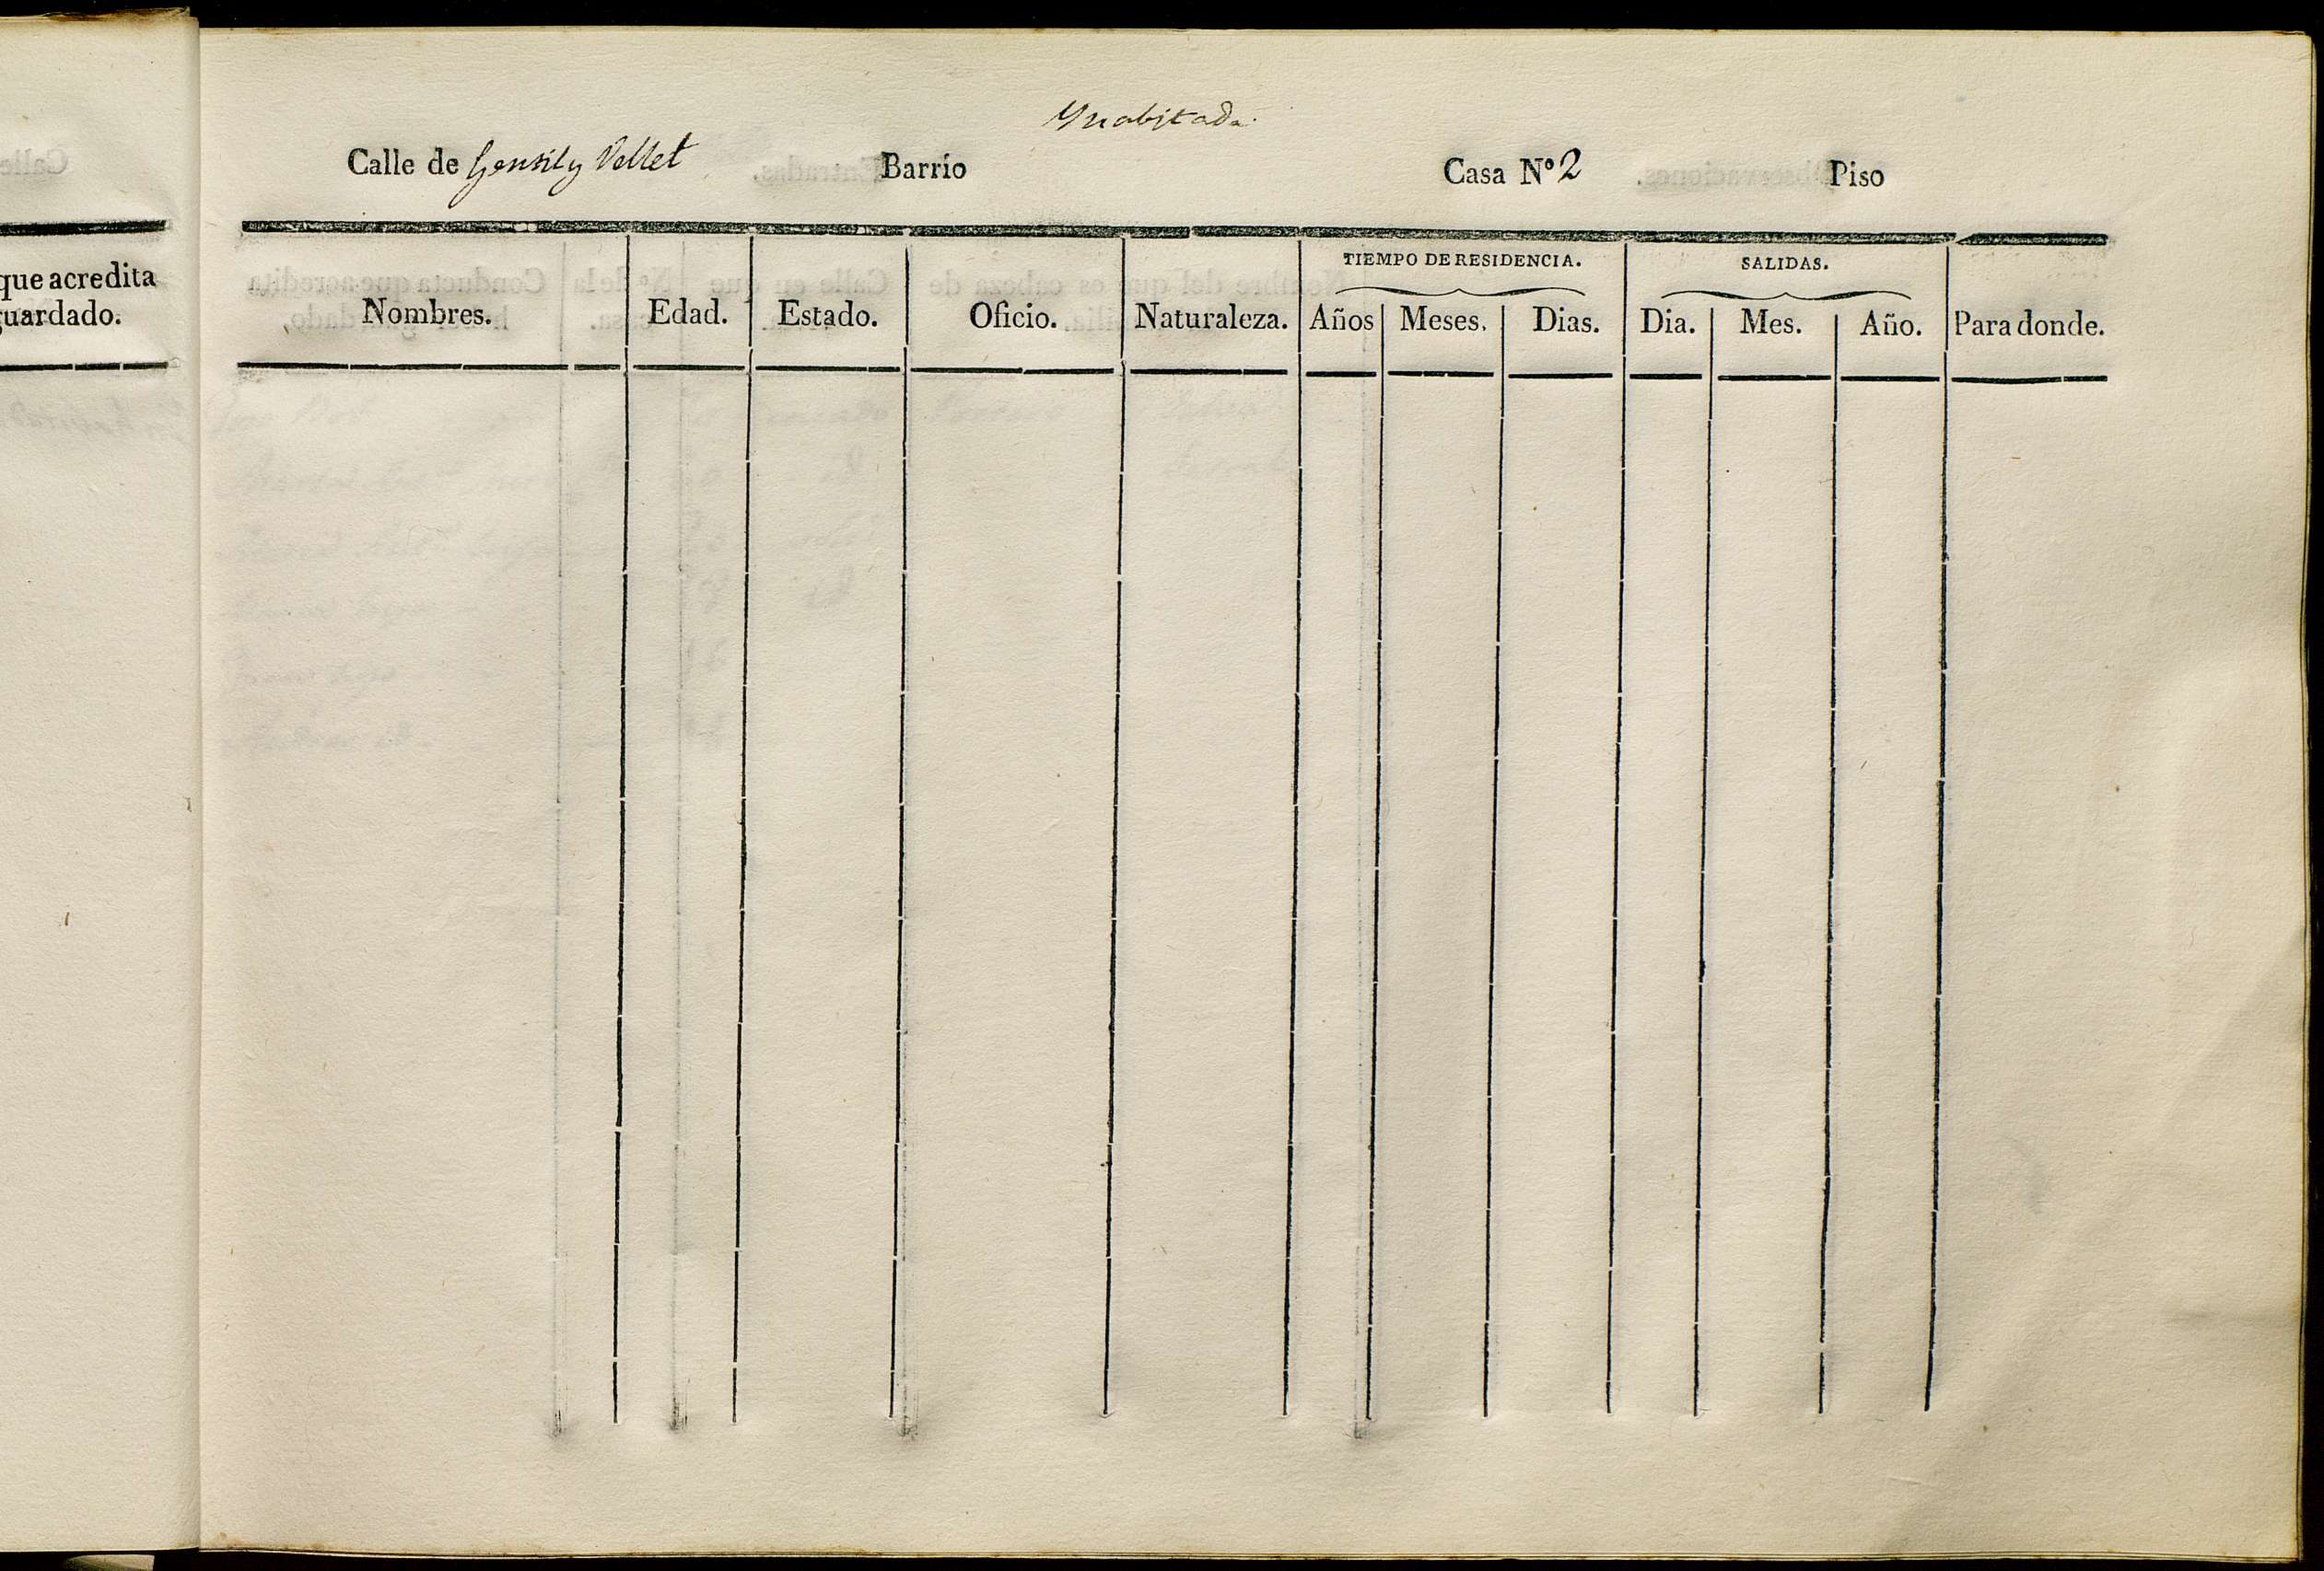 que acredita
guardado.
Ynabitada.
Calle de Gensil y Vellet Barrio Casa Nº 2 Piso
TIEMPO DE RESIDENCIA. SALIDAS.
Nombres. Edad. Estado. Oficio. Naturaleza. Años Meses. Dias. Dia. Mes. Año. Para donde.